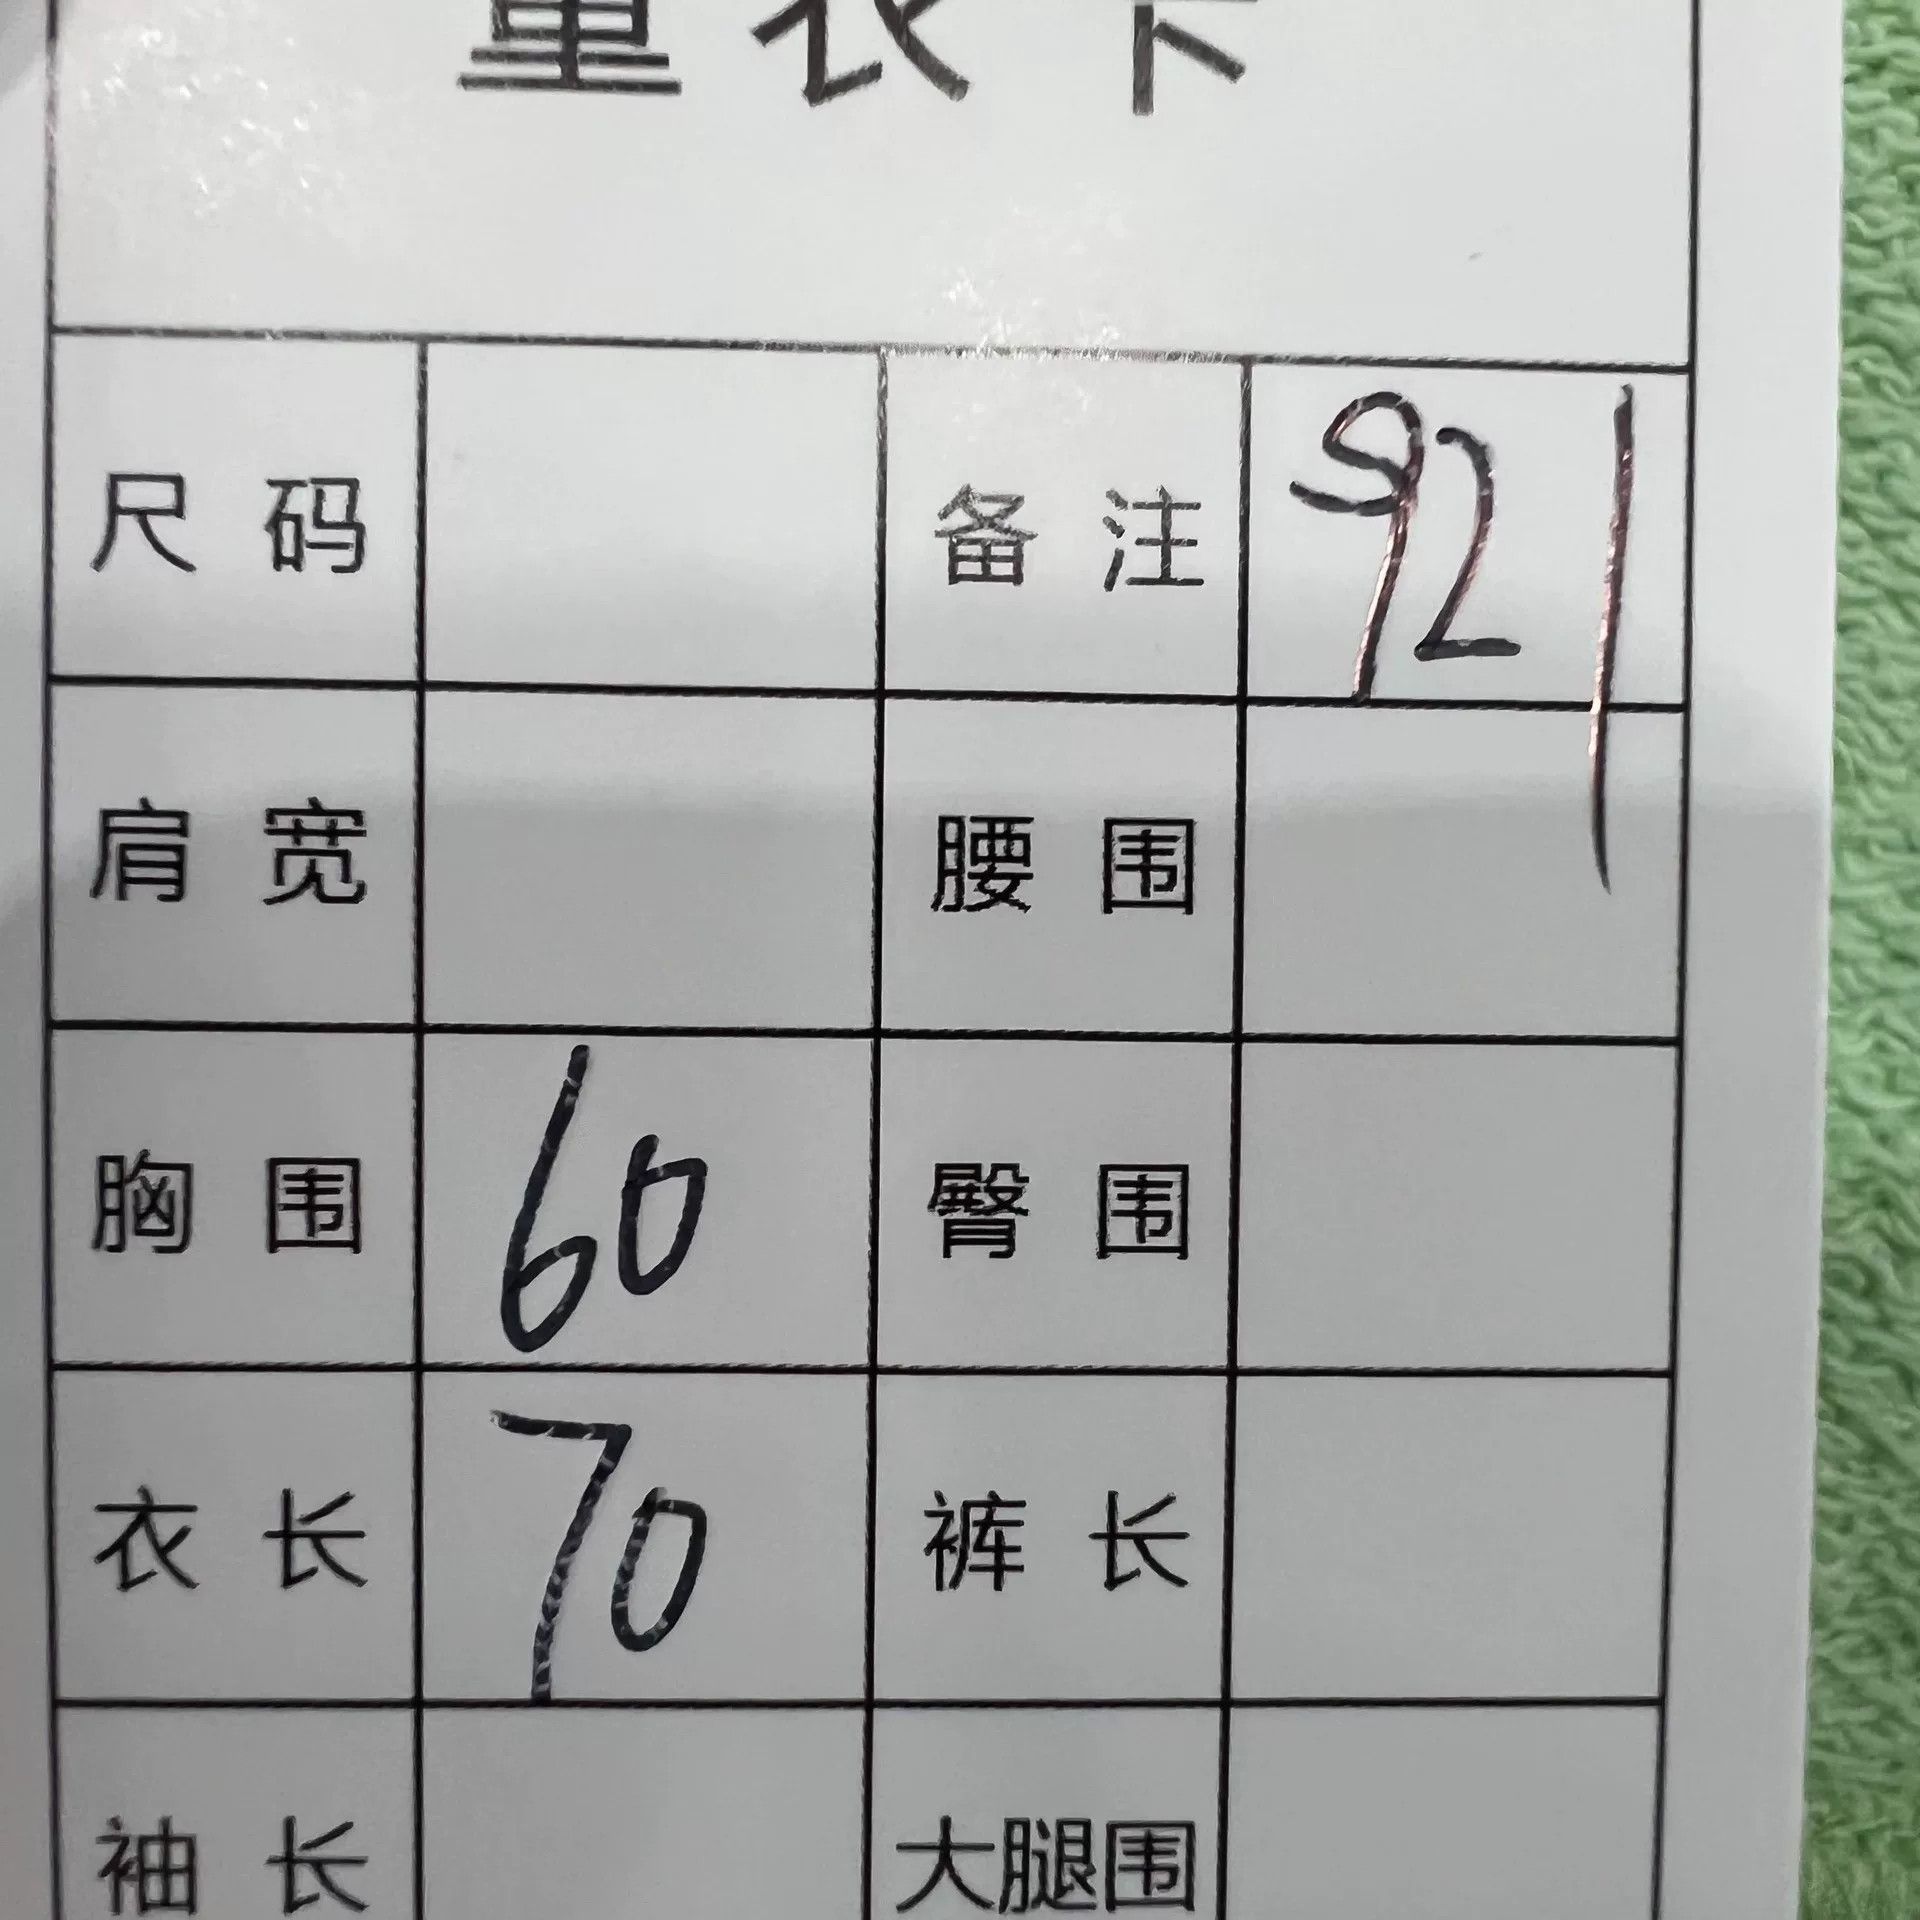 量衣卡
尺码 备注 921
肩宽 腰围
胸围 60 臀围
衣长 70 裤长
袖长 大腿围